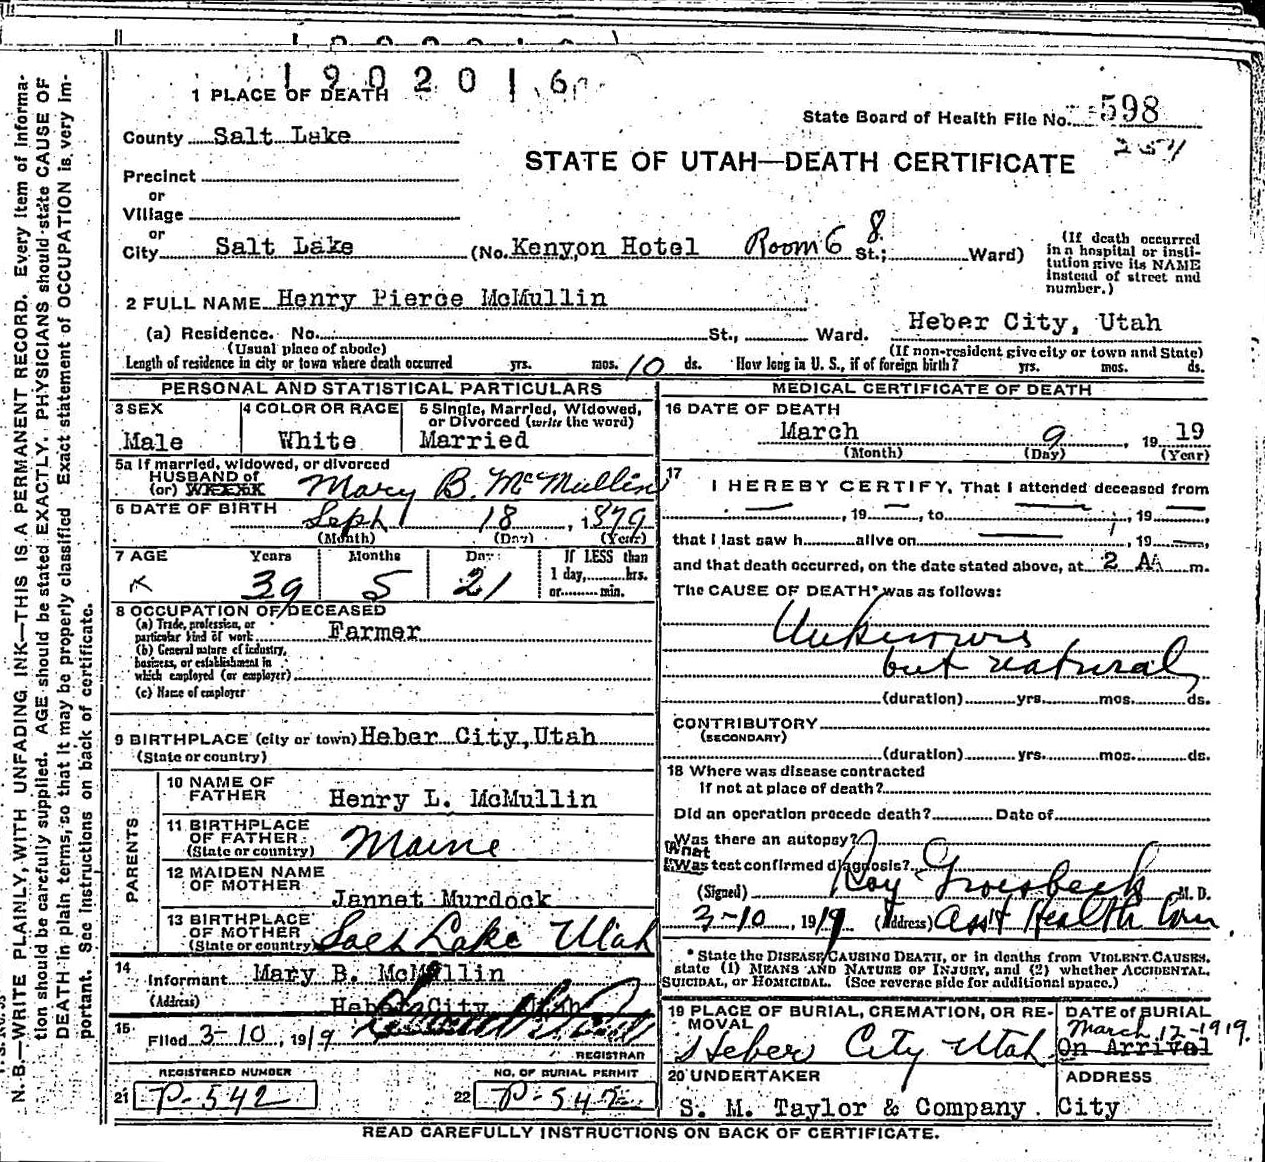 1902016
1 PLACE OF DEATH
State Board of Health File No. 598
257
County Salt Lake
STATE OF UTAH—DEATH CERTIFICATE
Precinct
or
Village
or
City Salt Lake (No. Kenyon Hotel Room 68 St.; Ward) (If death occurred in a hospital or insti-
tution give its NAME
instead of street and
number.)
2 FULL NAME Henry Pierce McMullin
(a) Residence. No. St., Ward. Heber City, Utah
(Usual place of abode) (If non-resident give city or town and State)
Length of residence in city or town where death occurred yrs. mos. 10 ds. How long in U. S., if of foreign birth? yrs. mos. ds.
PERSONAL AND STATISTICAL PARTICULARS
3 SEX
Male
4 COLOR OR RACE
White
5 Single, Married, Widowed,
or Divorced (write the word)
Married
5a If married, widowed, or divorced
HUSBAND of
(or) Mary B. McMullin
6 DATE OF BIRTH Sept 18, 1879
(Month) (Day) (Year)
7 AGE Years Months Days If LESS than
39 5 21 1 day, hrs.
or min.
8 OCCUPATION OF DECEASED
(a) Trade, profession, or
particular kind of work Farmer
(b) General nature of industry,
business, or establishment in
which employed (or employer)
(c) Name of employer
9 BIRTHPLACE (city or town) Heber City, Utah
(State or country)
PARENTS
10 NAME OF
FATHER Henry L. McMullin
11 BIRTHPLACE
OF FATHER
(State or country) Maine
12 MAIDEN NAME
OF MOTHER Jannet Murdock
13 BIRTHPLACE
OF MOTHER
(State or country) Salt Lake Utah
14
Informant Mary B. McMullin
(Address) Heber City Utah
15
Filed 3-10, 1919
REGISTRAR
REGISTERED NUMBER NO. OF BURIAL PERMIT
21 P-542 22 P-542
MEDICAL CERTIFICATE OF DEATH
16 DATE OF DEATH
March 9, 1919
(Month) (Day) (Year)
17
I HEREBY CERTIFY, That I attended deceased from
, 19 , to , 19 ,
that I last saw h alive on , 19 ,
and that death occurred, on the date stated above, at 2 A m.
The CAUSE OF DEATH* was as follows:
Unknown
but natural
(duration) yrs. mos. ds.
CONTRIBUTORY
(SECONDARY)
(duration) yrs. mos. ds.
18 Where was disease contracted
If not at place of death?
Did an operation precede death? Date of
Was there an autopsy?
What
Was test confirmed diagnosis?
(Signed) Roy Groesbeck M. D.
3-10, 1919 (Address) Ass't Health Com
* State the DISEASE CAUSING DEATH, or in deaths from VIOLENT CAUSES,
state (1) MEANS AND NATURE OF INJURY, and (2) whether ACCIDENTAL,
SUICIDAL, or HOMICIDAL. (See reverse side for additional space.)
19 PLACE OF BURIAL, CREMATION, OR RE-
MOVAL
Heber City Utah
DATE OF BURIAL
March 12-1919.
On Arrival
20 UNDERTAKER
S. M. Taylor & Company.
ADDRESS
City
READ CAREFULLY INSTRUCTIONS ON BACK OF CERTIFICATE.
N. B.—WRITE PLAINLY, WITH UNFADING INK—THIS IS A PERMANENT RECORD. Every item of informa-
tion should be carefully supplied. AGE should be stated EXACTLY. PHYSICIANS should state CAUSE OF
DEATH in plain terms, so that it may be properly classified. Exact statement of OCCUPATION is very im-
portant. See instructions on back of certificate.